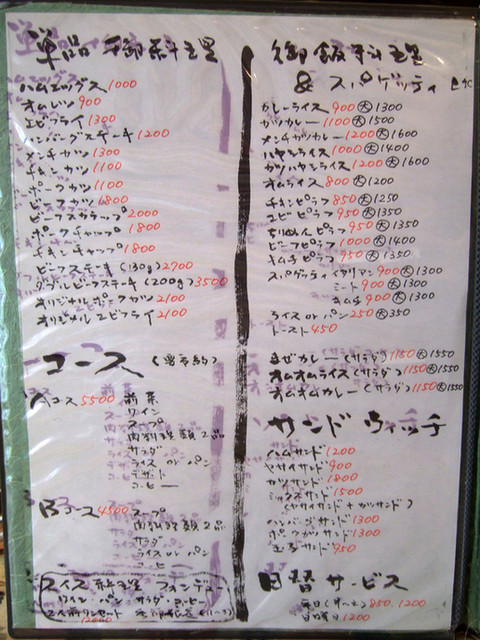 単品御料理
ハムエッグス 1000
オムレツ 900
エビフライ 1300
ハンバーグステーキ 1200
メンチカツ 1300
チキンカツ 1100
ポークカツ 1100
ビーフカツ 1800
ビーフスカラップ 2000
ポークチャップ 1800
チキンチャップ 1800
ビーフステーキ(130g) 2700
ダブルビーフステーキ(200g) 3500
オリジナルポークカツ 2100
オリジナルエビフライ 2100
コース (要予約)
Aコース 5500 前菜
ワイン
スープ
肉料理類2品
サラダ
ライス or パン
デザート
コーヒー
Bコース 4500 スープ
肉料理類2品
サラダ
ライス or パン
コーヒー
スイス料理 フォンデュ
ワイン パン サラダ コーヒー
2人前ワンセット
12000
御飯料理
& スパゲッティ
カレーライス 900 大 1300
カツカレー 1100 大 1500
メンチカツカレー 1200 大 1600
ハヤシライス 1000 大 1400
カツハヤシライス 1200 大 1600
オムライス 800 大 1200
チキンピラフ 850 大 1250
エビピラフ 950 大 1350
ちりめんピラフ 950 大 1350
ビーフピラフ 1000 大 1400
キムチピラフ 950 大 1350
スパゲッティイタリアン 900 大 1300
ミート 900 大 1300
キムチ 900 大 1300
ライス or パン 250 大 350
トースト 450
まぜカレー(サラダ) 1150 大 1550
オムオムライス(サラダ) 1150 大 1550
オムオムカレー(サラダ) 1150 大 1550
サンドウィッチ
ハムサンド 1200
ヤサイサンド 900
カツサンド 1800
ミックスサンド 1500
(ヤサイサンド+カツサンド)
ハンバーグサンド 1300
ポークカツサンド 1300
玉子サンド 950
日替サービス
毎日(月〜土) 850, 1200
日曜日 1200